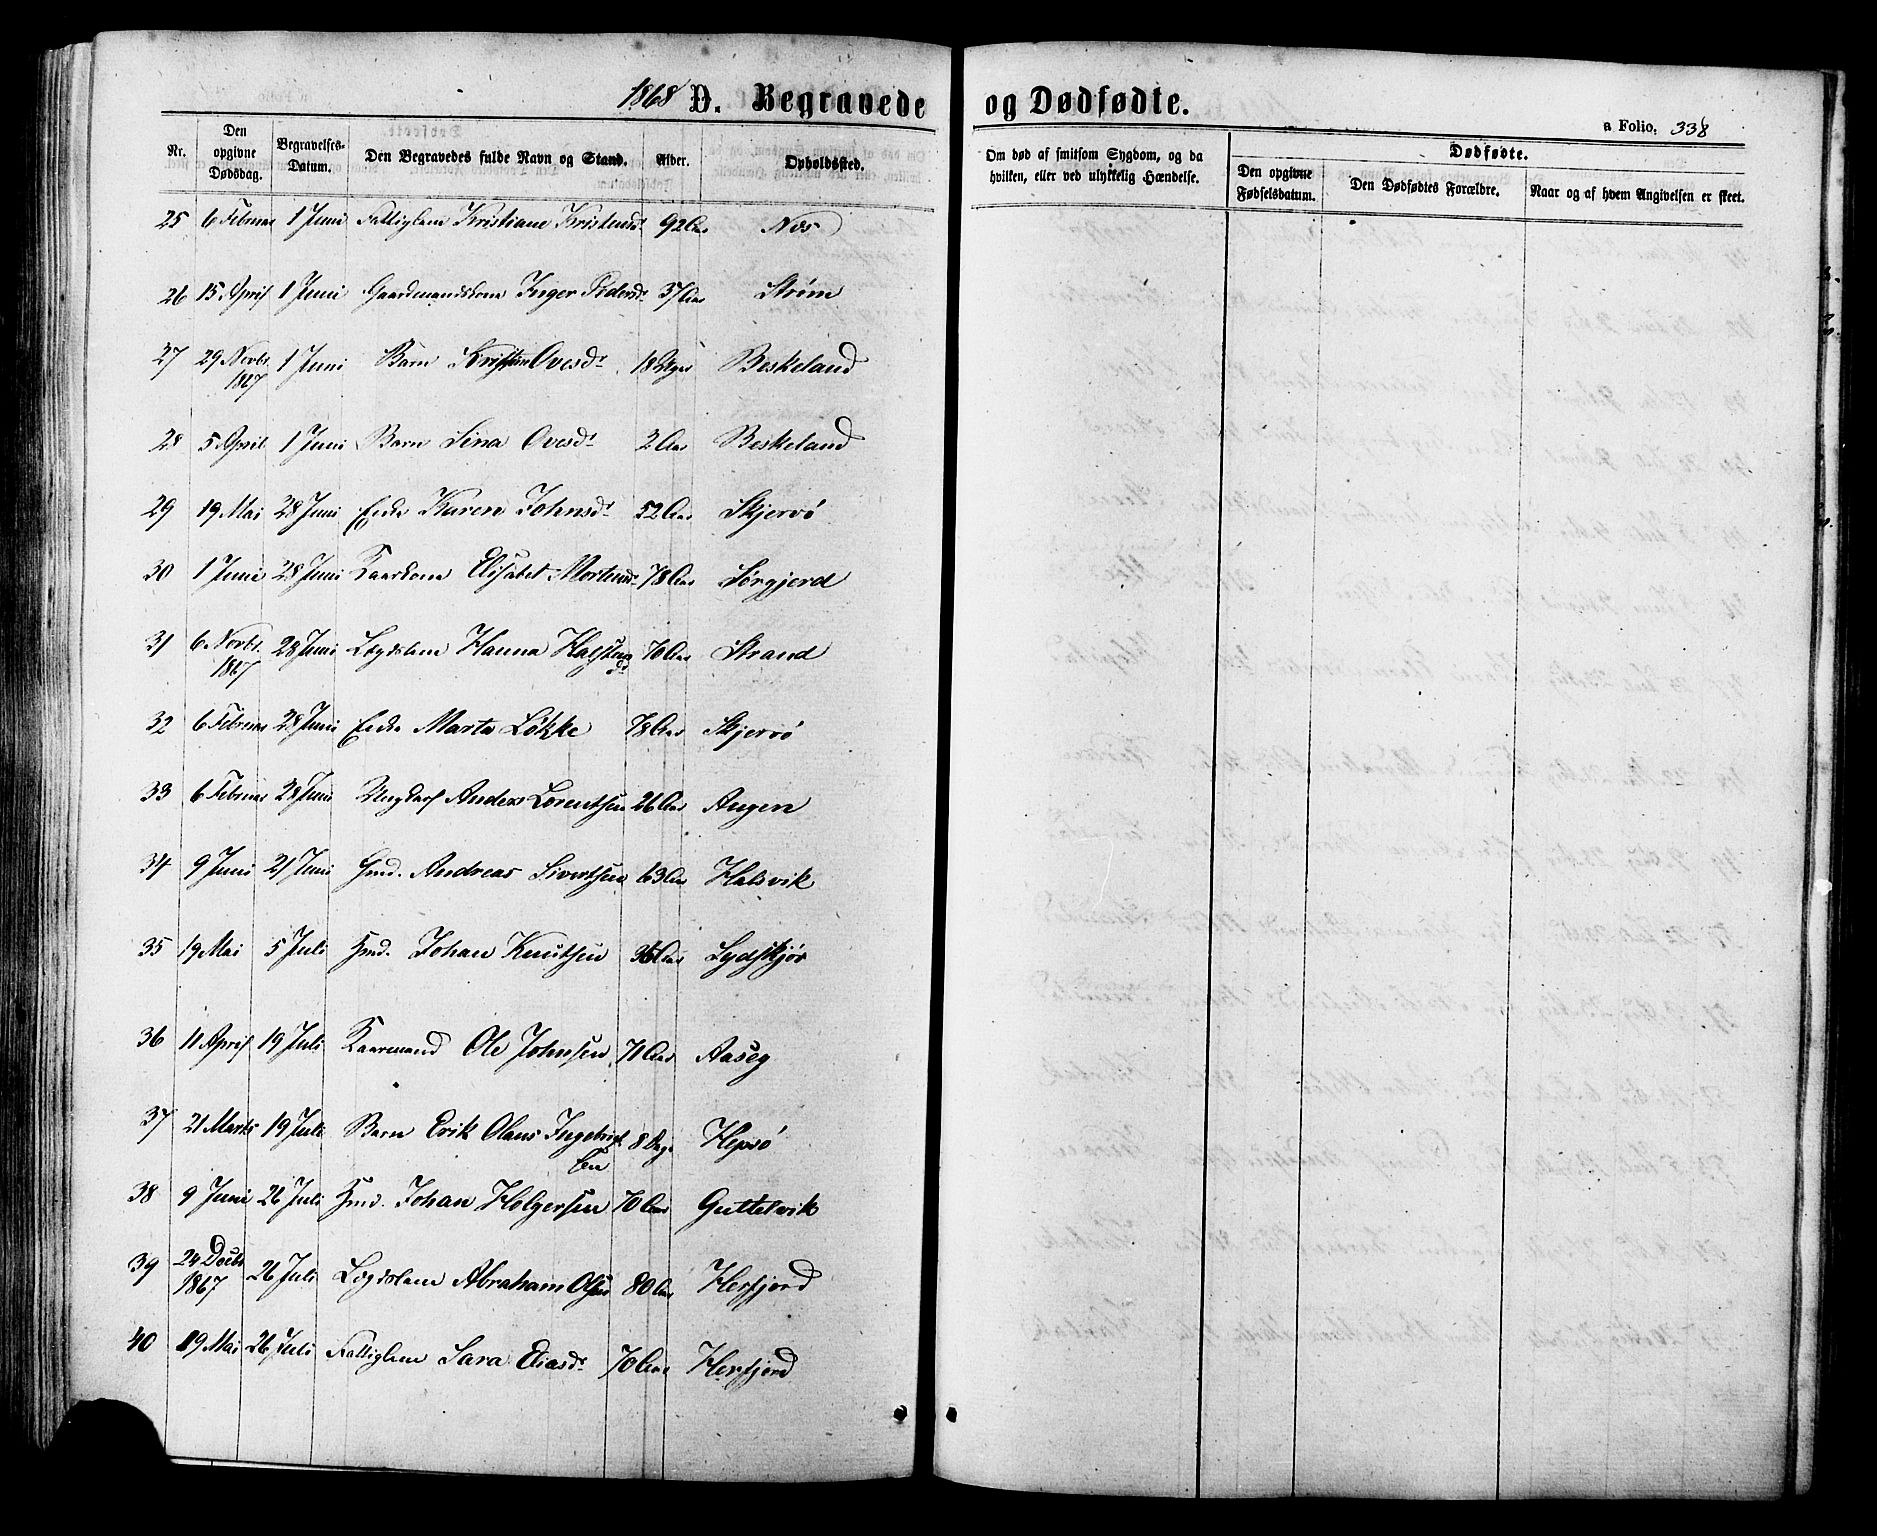 1868 D. Begravede og Dødfødte.
a Folio. 338
Nr. Den opgivne Dødsdag. Begravelses-Datum. Den Begravedes fulde Navn og Stand. Alder. Opholdssted.
Om død af smitsom Sygdom, og da hvilken, eller ved ulykkelig Hændelse.
Dødfødte.
Den opgivne Fødselsdatum. Den Dødfødtes Forældre. Naar og af hvem Angivelsen er skeet.
25 6 Februar 1 Juni Fattiglem Kristiane Kristensdr 92 Aar Nes
26 15 April 1 Juni Gaardmandskone Inger Pedersdr 37 Aar Strøm
27 29 Novbr. 1 Juni Barn Ovesdr 18 Beskeland
1867
28 5 April 1 Juni Barn Lina Ovesdr 2 Aar Beskeland
29 19 Mai 28 Juni Enke Karen Johnsdr 52 Aar Skjervø
30 1 Juni 28 Juni Kaarkone Elisabet Mortensdr 78 Aar Sørgjerd
31 6 Novbr. 28 Juni Lægdslem Hanna 70 Aar Strand
1867
32 6 Februar 28 Juni Enke Marta Løkke 78 Aar Skjervø
33 6 Februar 28 Juni Ungkarl Anders Lorentsen 26 Aar Angen
34 9 Juni 21 Juni Gmd. Andreas Sivertsen 63 Aar Halsvik
35 19 Mai 5 Juli Hmd. Johan Knutsen Aar
36 11 April 19 Juli Kaarmand Ole Johnsen 71 Aar Aaseg
37 21 Marts 19 Juli Barn Erik Olaus Ingebrigt 8 Dage Hepsø
sen
38 9 Juni 26 Juli Hmd. Johan Holgersen 70 Aar Guttelvik
39 24 Decbr 26 Juli Lægdslem Abraham Olsen 80 Aar Herfjord
1867
40 19 Mai 26 Juli Fattiglem Sara Eliasdr 70 Aar Herfjord